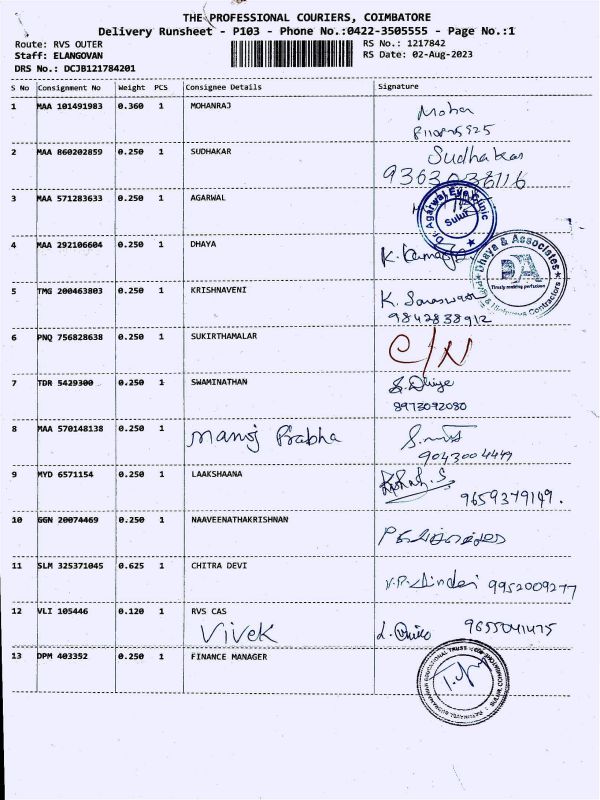 THE PROFESSIONAL COURIERS, COIMBATORE
Delivery Runsheet - P103 - Phone No.:0422-3505555 - Page No.:1
Route: RVS OUTER RS No.: 1217842
Staff: ELANGOVAN RS Date: 02-Aug-2023
DRS No.: DCJB121784201
S No Consignment No Weight PCS Consignee Details Signature
1 MAA 101491983 0.360 1 MOHANRAJ
2 MAA 860202859 0.250 1 SUDHAKAR Sudhakar
3 MAA 571283633 0.250 1 AGARWAL
Dr. Agarwal Eye Clinic
Sulur
4 MAA 292106604 0.250 1 DHAYA
Dhaya & Associates
DA
5 TMG 200463803 0.250 1 KRISHNAVENI
9842838912
6 PNQ 756828638 0.250 1 SUKIRTHAMALAR C/N
7 TDR 5429300 0.250 1 SWAMINATHAN
8973092080
8 MAA 570148138 0.250 1 Manoj Prabha
9043004449
9 MYD 6571154 0.250 1 LAAKSHAANA
9659379149.
10 GGN 20074469 0.250 1 NAAVEENATHAKRISHNAN
11 SLM 325371045 0.625 1 CHITRA DEVI
9952009277
12 VLI 105446 0.120 1 RVS CAS
Vivek 9655041475
13 DPM 403352 0.250 1 FINANCE MANAGER